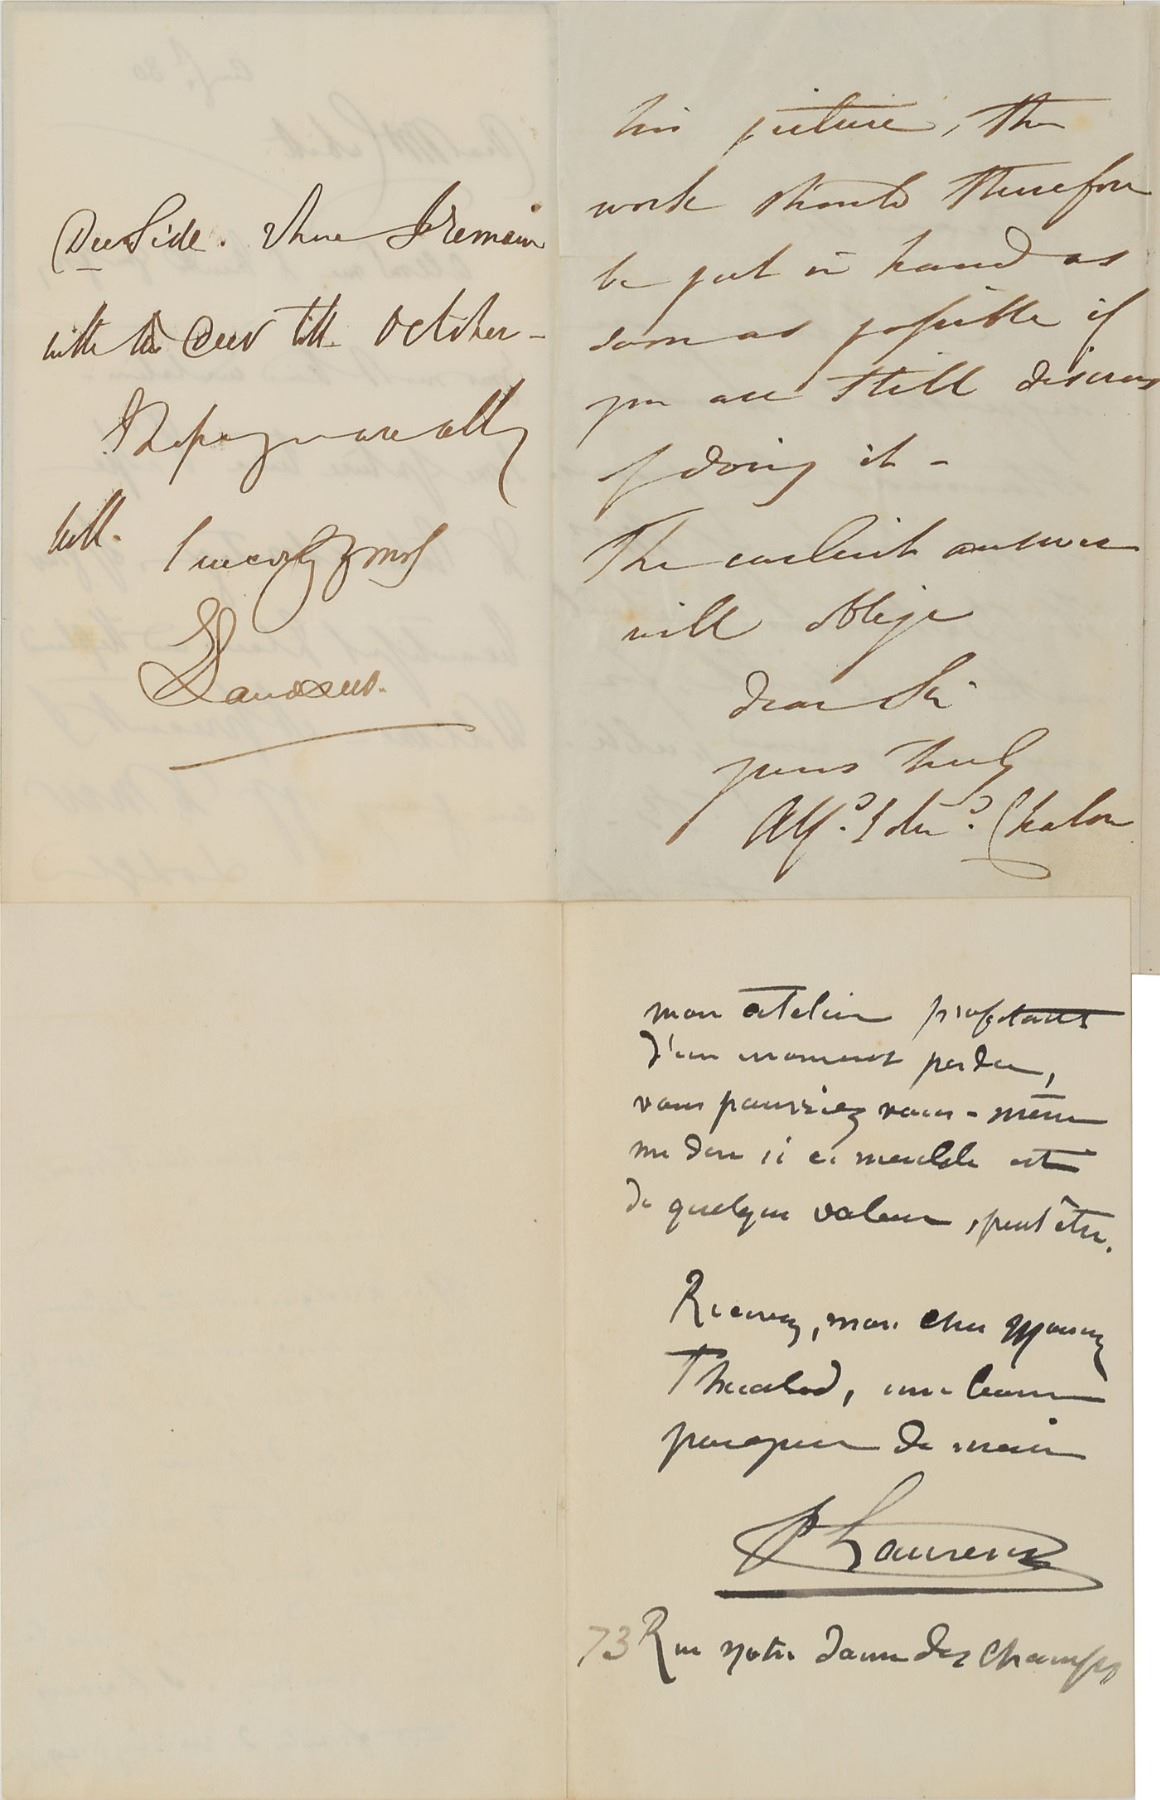 DeeSide. Where I remain
with the Deer till October -
I hope you are all
well. Sincerely Yours
E Landseer.
his picture, the
work should therefore
be put in hand as
soon as possible if
you are still desirous
of doing it -
The earliest answer
will oblige
dear Sir
yours truly
Alf.d Edw.d Chalon
mon atelier profitant
d'un moment perdu,
vous pourriez vous-même
me dire si ce meuble est
de quelque valeur, peut être.
Recevez, mon cher Monsieur
une bonne
poignée de main
Laurens
73 Rue notre dame des Champs